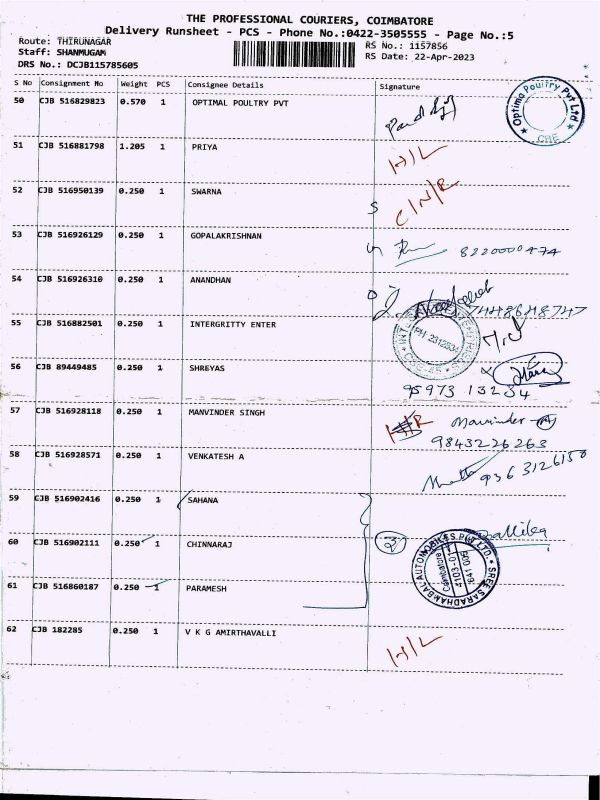 THE PROFESSIONAL COURIERS, COIMBATORE
Delivery Runsheet - PCS - Phone No.:0422-3505555 - Page No.:5
Route: THIRUNAGAR
Staff: SHANMUGAM
DRS No.: DCJB115785605
RS No.: 1157856
RS Date: 22-Apr-2023
S No Consignment No Weight PCS Consignee Details Signature
50 CJB 516829823 0.570 1 OPTIMAL POULTRY PVT
Optima Poultry Pvt Ltd
CBE
51 CJB 516881798 1.205 1 PRIYA H/L
52 CJB 516950139 0.250 1 SWARNA C/N/R
53 CJB 516926129 0.250 1 GOPALAKRISHNAN 8220000474
54 CJB 516926310 0.250 1 ANANDHAN
55 CJB 516882501 0.250 1 INTERGRITTY ENTER
PH 2312934
56 CJB 89449485 0.250 1 SHREYAS
95973 13234
57 CJB 516928118 0.250 1 MANVINDER SINGH Manvinder
9843226263
58 CJB 516928571 0.250 1 VENKATESH A 936 3126150
59 CJB 516902416 0.250 1 SAHANA
60 CJB 516902111 0.250 1 CHINNARAJ 3
SREE SARADHAMBAL AUTOMOBILES PVT LTD.
Coimbatore
641 005
61 CJB 516860187 0.250 1 PARAMESH
62 CJB 182285 0.250 1 V K G AMIRTHAVALLI H/L